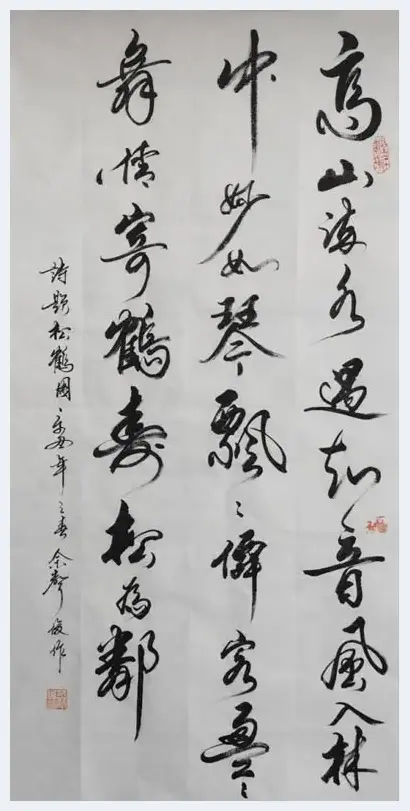 高山流水遇知音風入林
中妙如琴飄〻僊客盈〻
舞情寄鶴壽松為鄰
詩題松鶴圖辛丑年之春余聲俊作